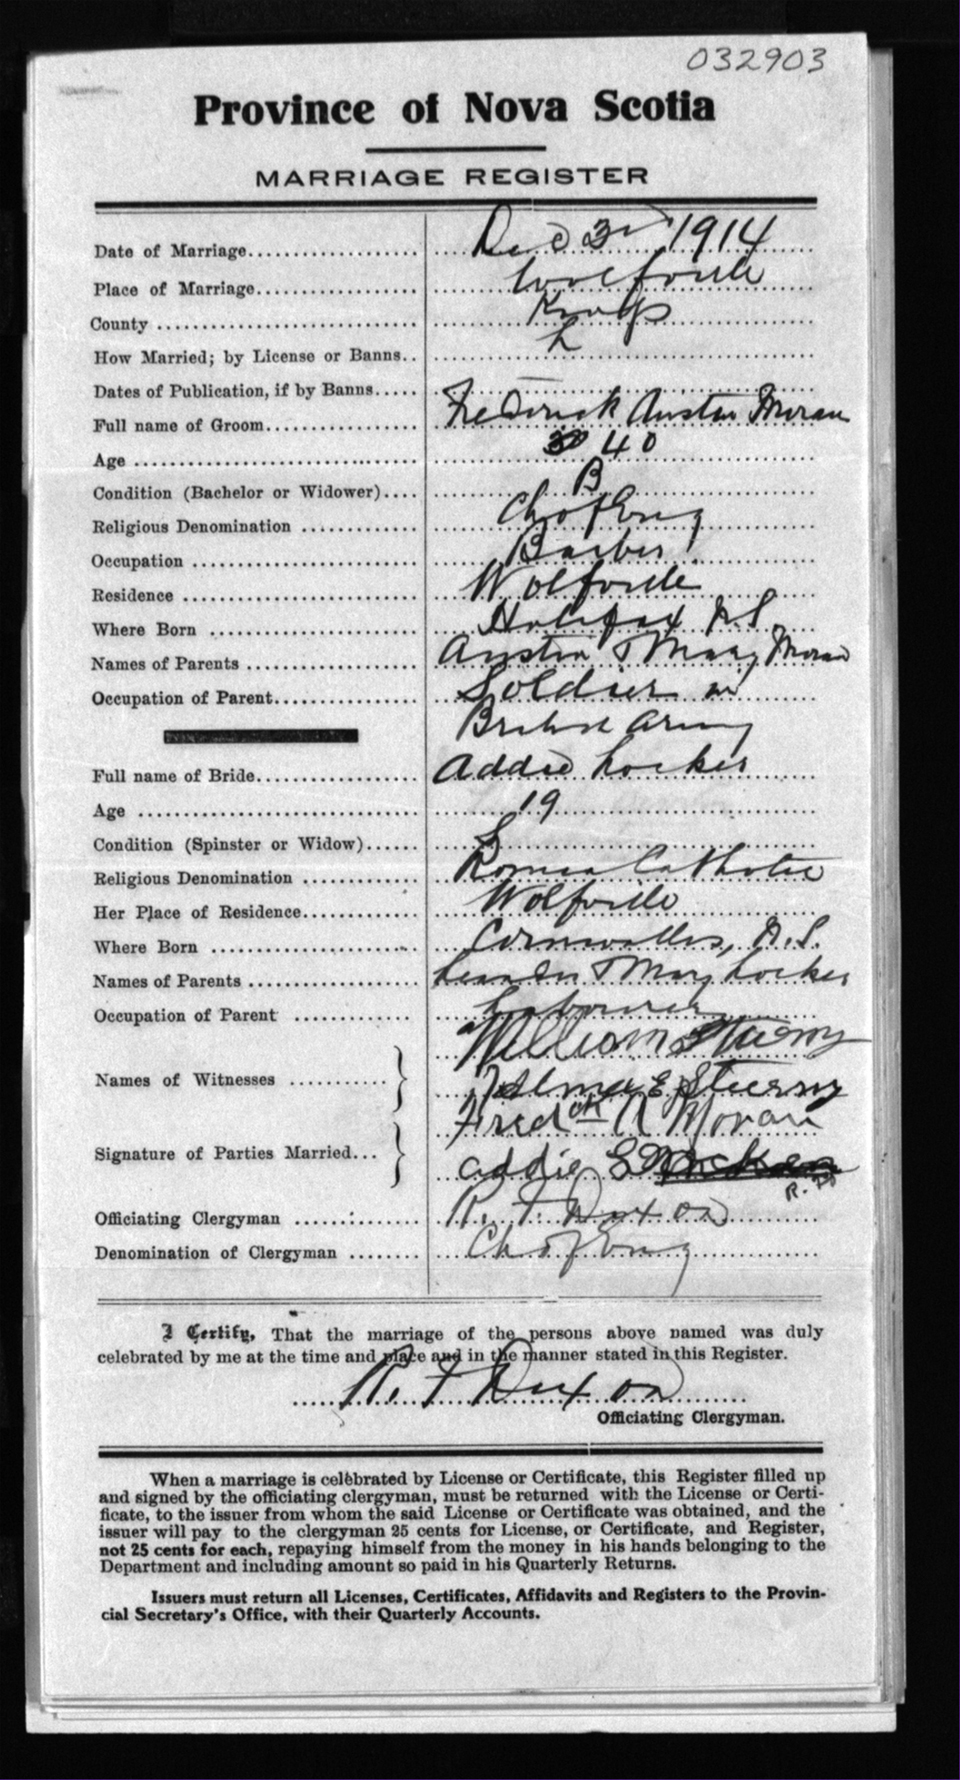 032903
Province of Nova Scotia
MARRIAGE REGISTER
Date of Marriage Dec 3rd 1914
Place of Marriage Wolfville
County Kings
How Married; by License or Banns L
Dates of Publication, if by Banns —
Full name of Groom Frederick Austin Moran
Age 40
Condition (Bachelor or Widower) B
Religious Denomination Ch of Eng
Occupation Barber
Residence Wolfville
Where Born Halifax N.S.
Names of Parents Austin & Mary Moran
Occupation of Parent Soldier in
British Army
Full name of Bride Addie Locker
Age 19
Condition (Spinster or Widow) S
Religious Denomination Roman Catholic
Her Place of Residence Wolfville
Where Born Cornwallis, N.S.
Names of Parents Leander & Mary Locker
Occupation of Parent Labourer
William
Names of Witnesses E
Fredck A Moran
Signature of Parties Married
Addie
Officiating Clergyman R. F. Dixon
Denomination of Clergyman Ch of Eng
I Certify, That the marriage of the persons above named was duly
celebrated by me at the time and place and in the manner stated in this Register.
R. F. Dixon
Officiating Clergyman.
When a marriage is celebrated by License or Certificate, this Register filled up
and signed by the officiating clergyman, must be returned with the License or Certi-
ficate, to the issuer from whom the said License or Certificate was obtained, and the
issuer will pay to the clergyman 25 cents for License, or Certificate, and Register,
not 25 cents for each, repaying himself from the money in his hands belonging to the
Department and including amount so paid in his Quarterly Returns.
Issuers must return all Licenses, Certificates, Affidavits and Registers to the Provin-
cial Secretary's Office, with their Quarterly Accounts.